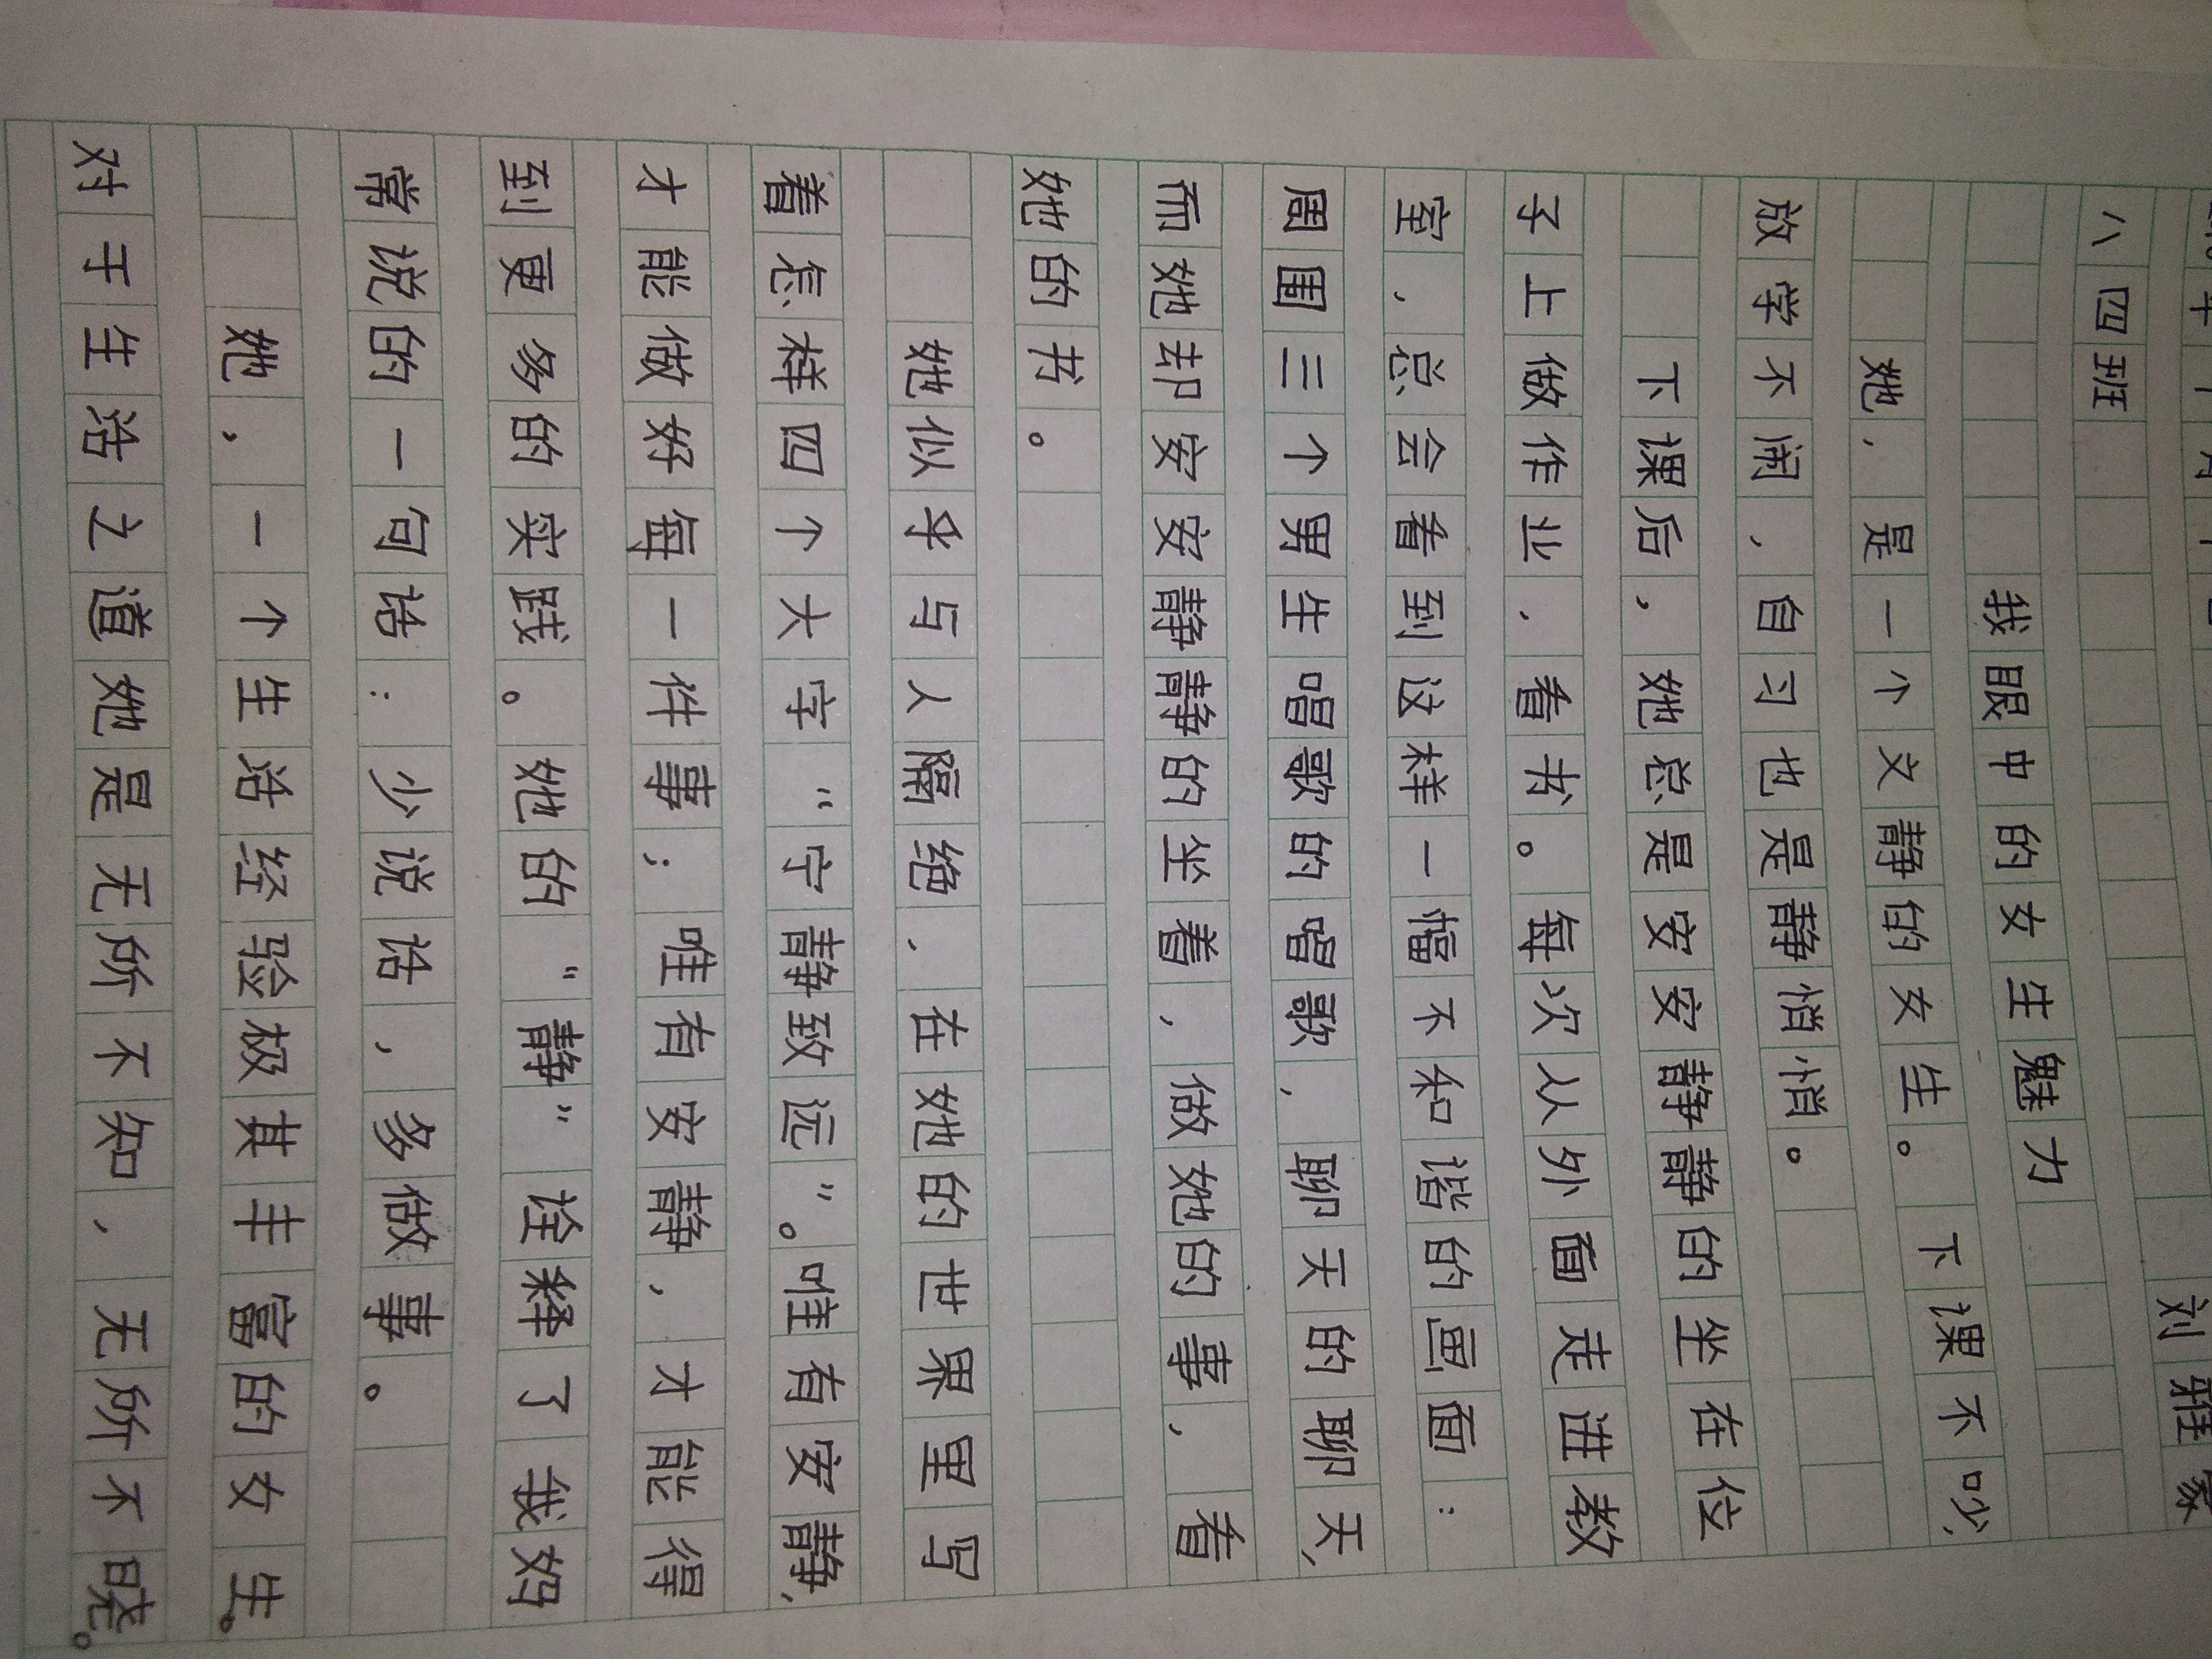 刘雅家
八四班
我眼中的女生魅力
她，是一个文静的女生。下课不吵，
放学不闹，自习也是静悄悄。
下课后，她总是安安静静的坐在位
子上做作业，看书。每次从外面走进教
室，总会看到这样一幅不和谐的画面：
周围三个男生唱歌的唱歌，聊天的聊天，
而她却安安静静的坐着，做她的事，看
她的书。
她似乎与人隔绝，在她的世界里写
着怎样四个大字“宁静致远”。唯有安静，
才能做好每一件事；唯有安静，才能得
到更多的实践。她的“静”诠释了我妈
常说的一句话：少说话，多做事。
她，一个生活经验极其丰富的女生。
对于生活之道她是无所不知，无所不晓。